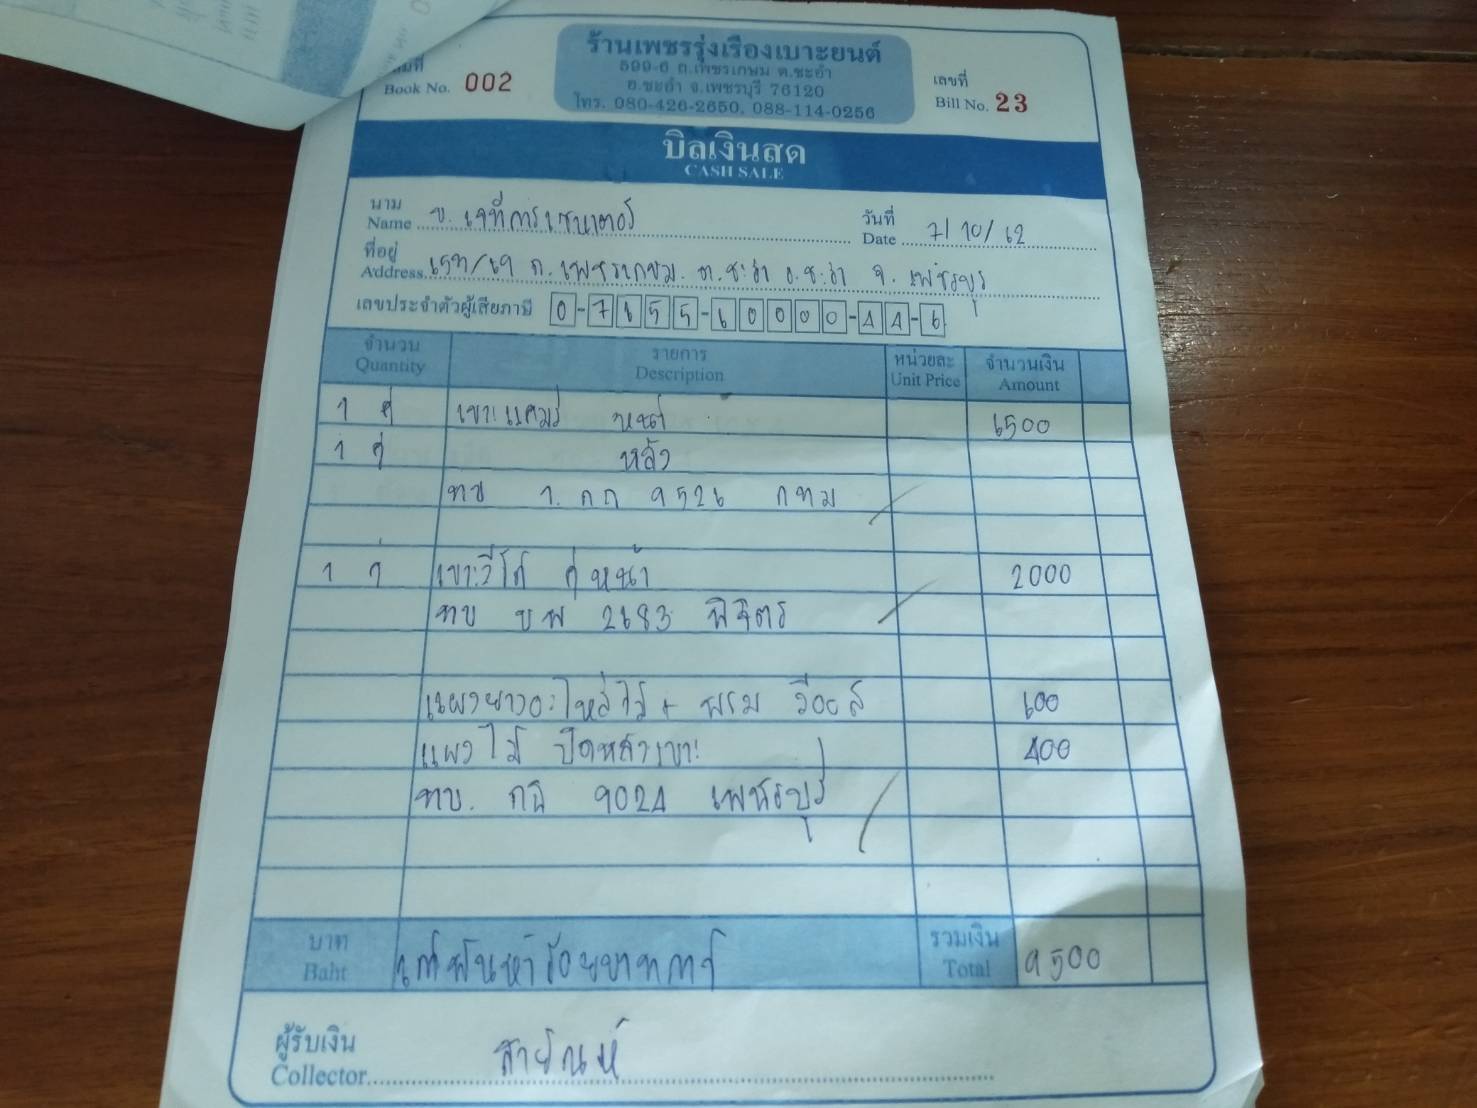 ร้านเพชรรุ่งเรืองเบาะยนต์
599-6 ถ.เพชรเกษม ต.ชะอำ
อ.ชะอำ จ.เพชรบุรี 76120
โทร. 080-426-2650, 088-114-0256
Book No. 002
เลขที่
Bill No. 23
บิลเงินสด
CASH SALE
นาม
Name
วันที่
Date 7/10/62
ที่อยู่
Address ถ.เพชรเกษม ต.ชะอำ อ.ชะอำ จ.เพชรบุรี
เลขประจำตัวผู้เสียภาษี 0-7655-60000-44-6
จำนวน Quantity รายการ Description หน่วยละ Unit Price จำนวนเงิน Amount
1 คู่ เบาะแคมรี่ หน้า 6500
1 คู่ หลัง
ทบ 1. กฤ 9526 กทม
1 เบาะวีโก้ คู่หน้า 2000
ทบ 2683 พิจิตร
+ พรม วีออส 600
แผงไม้ ปิดหลังเบาะ 400
ทบ. 9024 เพชรบุรี
บาท
Baht เก้าพันห้าร้อยบาทถ้วน
รวมเงิน
Total 9500
ผู้รับเงิน
Collector สายัณห์